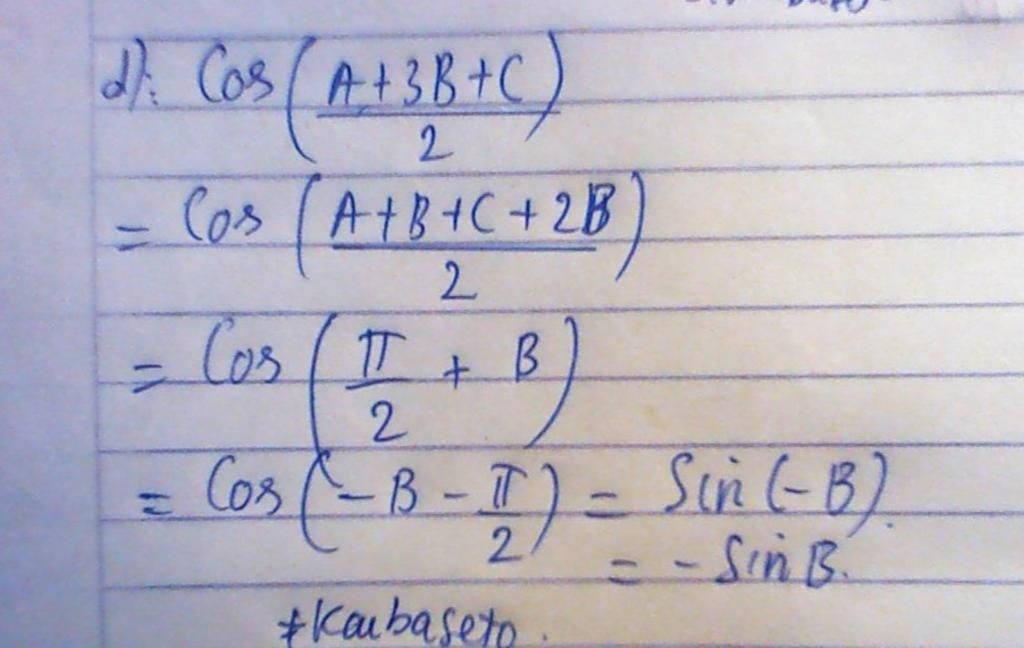 d): Cos (A+3B+C / 2)
= Cos (A+B+C+2B / 2)
= Cos (π/2 + B)
= Cos (-B - π/2) = Sin (-B).
= - Sin B.